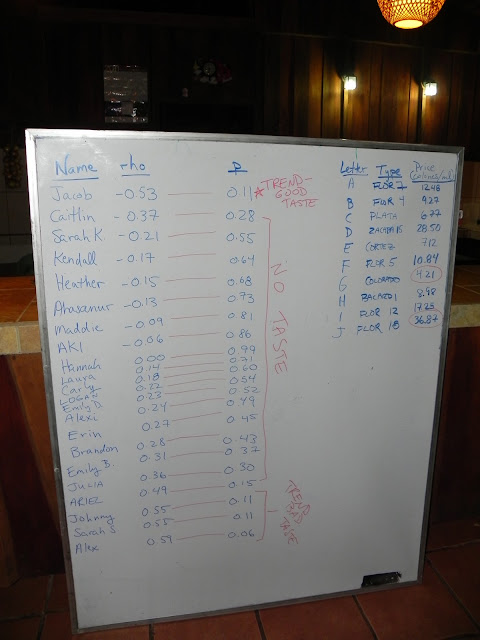 Name rho p
Jacob -0.53 0.11 * TREND-
GOOD
TASTE
Caitlin -0.37 0.28
Sarah K. -0.21 0.55
Kendall -0.17 0.64
Heather -0.15 0.68
-0.13 0.73
Maddie -0.09 0.81
AKI -0.06 0.86
Hannah 0.00 0.99
Laura 0.14 0.71
Carly 0.18 0.60
LOGAN 0.22 0.54
Emily D. 0.23 0.52
Alexi 0.24 0.49
Erin 0.27 0.45
Brandon 0.28 0.43
Emily B. 0.31 0.37
JULIA 0.36 0.30
ARIEL 0.49 0.15
Johnny 0.55 0.11
Sarah S 0.55 0.11
Alex 0.59 0.06
NO TASTE
TREND
BAD
TASTE
Letter Type Price
A FLOR 7 12.48
B FLOR 4 9.27
C PLATA 6.77
D 28.50
E CORTEZ 7.12
F FLOR 5 10.84
G COLORADO 4.21
H BACARDI 8.98
I FLOR 12 17.25
J FLOR 18 36.87